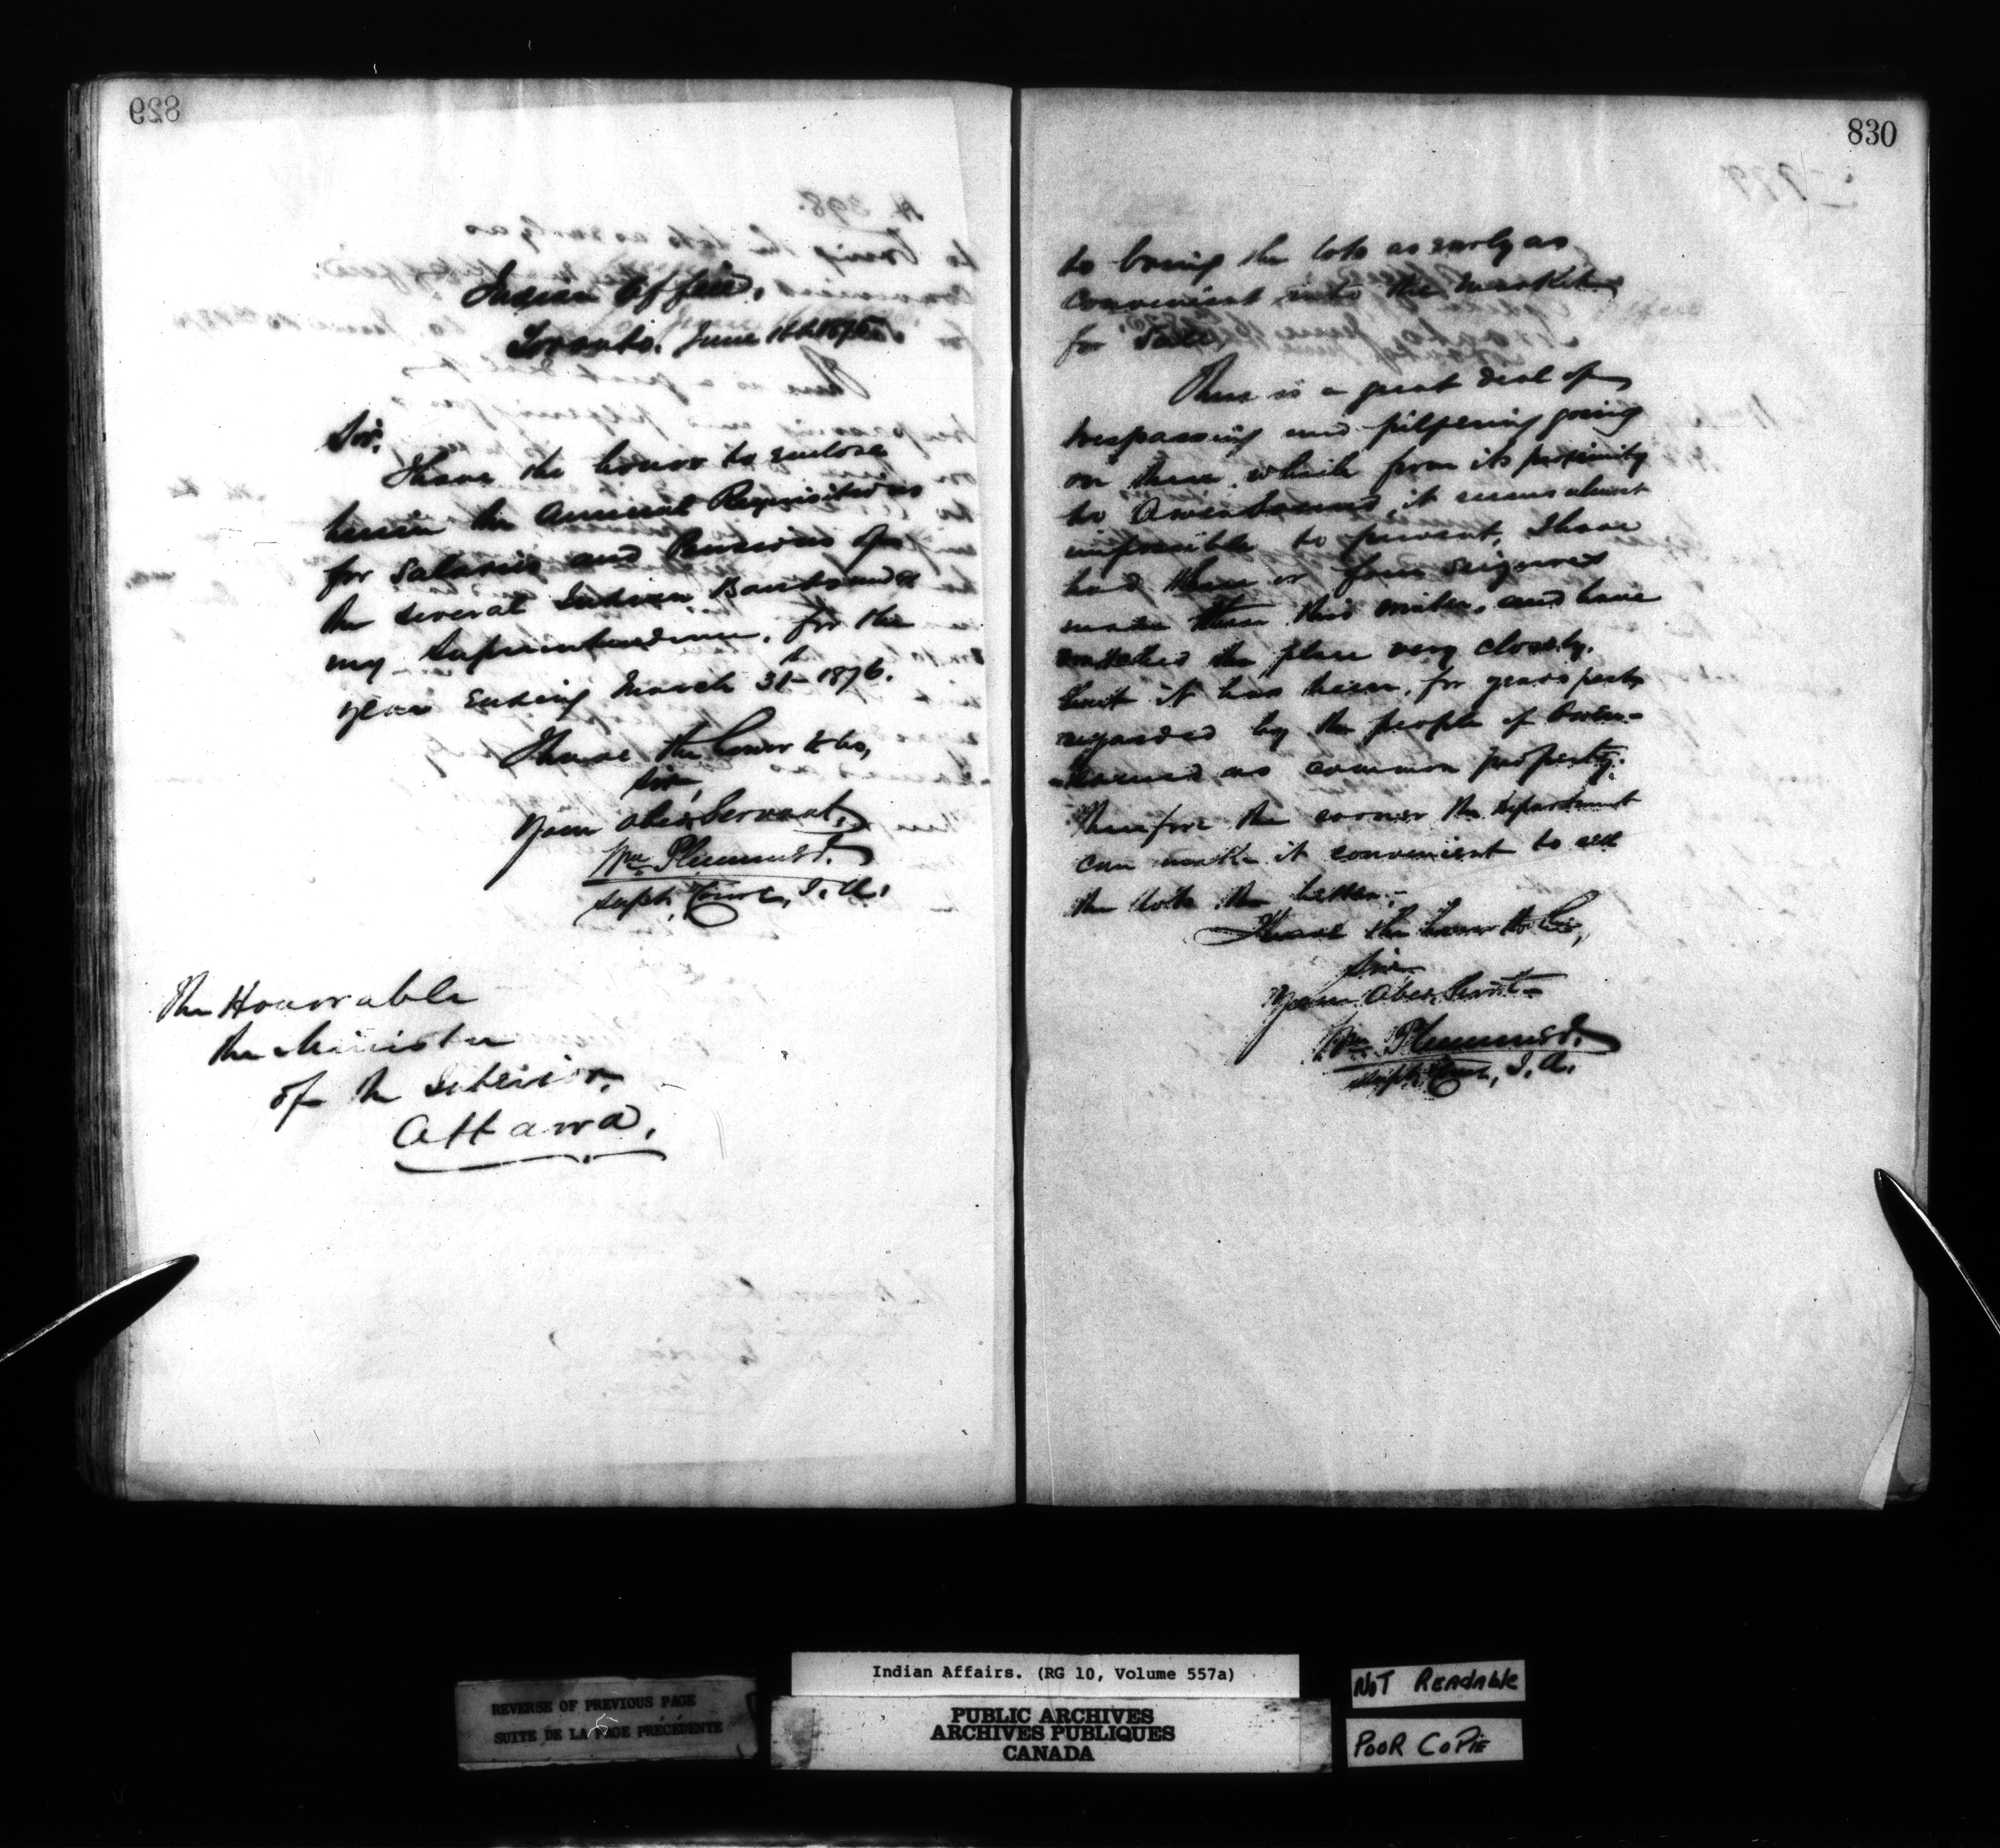 829
Indian Office,
Toronto, June 16th 1875.
Sir,
I have the honor to enclose
herein the Annual Requisitions
for Salaries and Pensions of
the several Indian Bands under
my Superintendence, for the
year ending March 31st 1876.
I have the honor to be,
Sir,
Your Obed. Servant,
Wm Plummer.
Supt. Comr, I. A.
The Honorable
the Minister
of the Interior,
Ottawa.
830
to bring the lots as early as
convenient into the market
for Sale.
There is a great deal of
trespassing and pilfering going
on there which from its proximity
to Owen Sound, it seems almost
impossible to prevent, I have
had three or four seizures
made there this winter, and have
watched the place very closely,
but it has been, for years past,
regarded by the people of Owen-
-Sound as common property.
Therefore the sooner the Department
can make it convenient to sell
the lots the better.-
I have the honor to be,
Sir,
Your Obed. Servt.
Wm Plummer.
Supt. Comr, I. A.
Indian Affairs. (RG 10, Volume 557a)
REVERSE OF PREVIOUS PAGE
SUITE DE LA PAGE PRÉCÉDENTE
PUBLIC ARCHIVES
ARCHIVES PUBLIQUES
CANADA
NOT READABLE
POOR COPIE